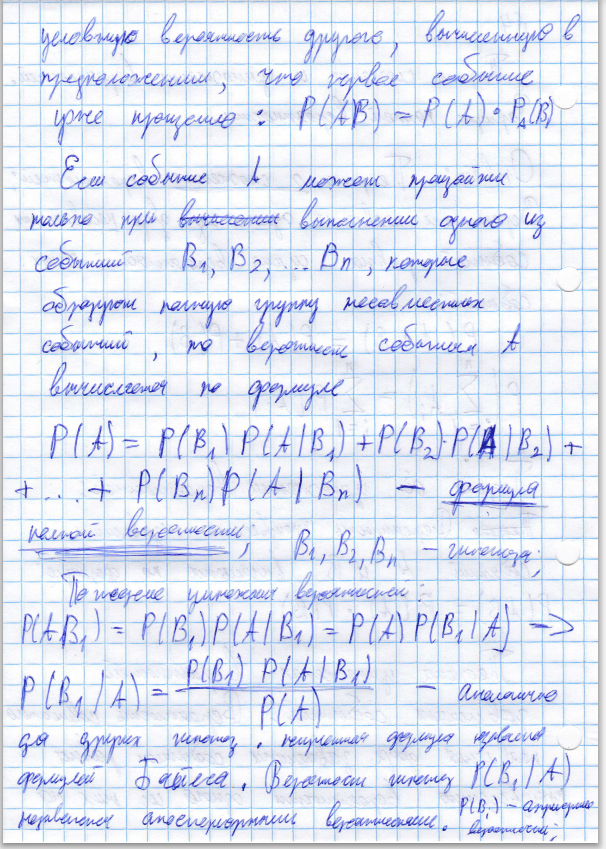 условную вероятность другого, вычисленную в
предположении, что первое событие
уже произошло: P(AB) = P(A)·P_A(B)
Если событие A может произойти
только при ~~вычислении~~ выполнении одного из
событий B₁, B₂, ... Bn, которые
образуют полную группу несовместных
событий, то вероятность события A
вычисляется по формуле
P(A) = P(B₁) P(A|B₁) + P(B₂)·P(A|B₂) +
+ ... + P(Bn) P(A|Bn) — формула
полной вероятности; B₁, B₂, Bn — гипотеза;
По теореме умножения вероятностей:
P(AB₁) = P(B₁)P(A|B₁) = P(A) P(B₁|A) —>
P(B₁|A) = P(B₁) P(A|B₁) / P(A) — аналогично
для других гипотез. формула называется
формулой Байеса. Вероятности гипотез P(B₁|A)
называются апостериорными вероятностями. P(B₁) — априорные
вероятности;